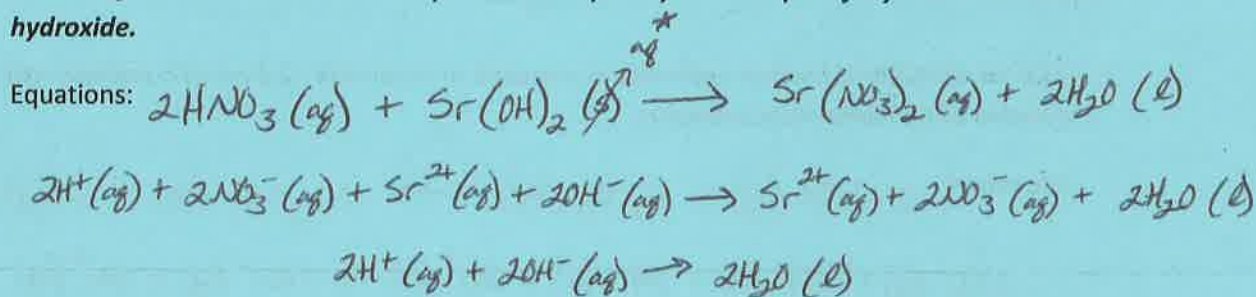 hydroxide.
aq *
Equations: 2HNO₃ (aq) + Sr(OH)₂ (s) → Sr(NO₃)₂ (aq) + 2H₂O (l)
2H⁺(aq) + 2NO₃⁻(aq) + Sr²⁺(aq) + 2OH⁻(aq) → Sr²⁺(aq) + 2NO₃⁻(aq) + 2H₂O (l)
2H⁺(aq) + 2OH⁻(aq) → 2H₂O (l)